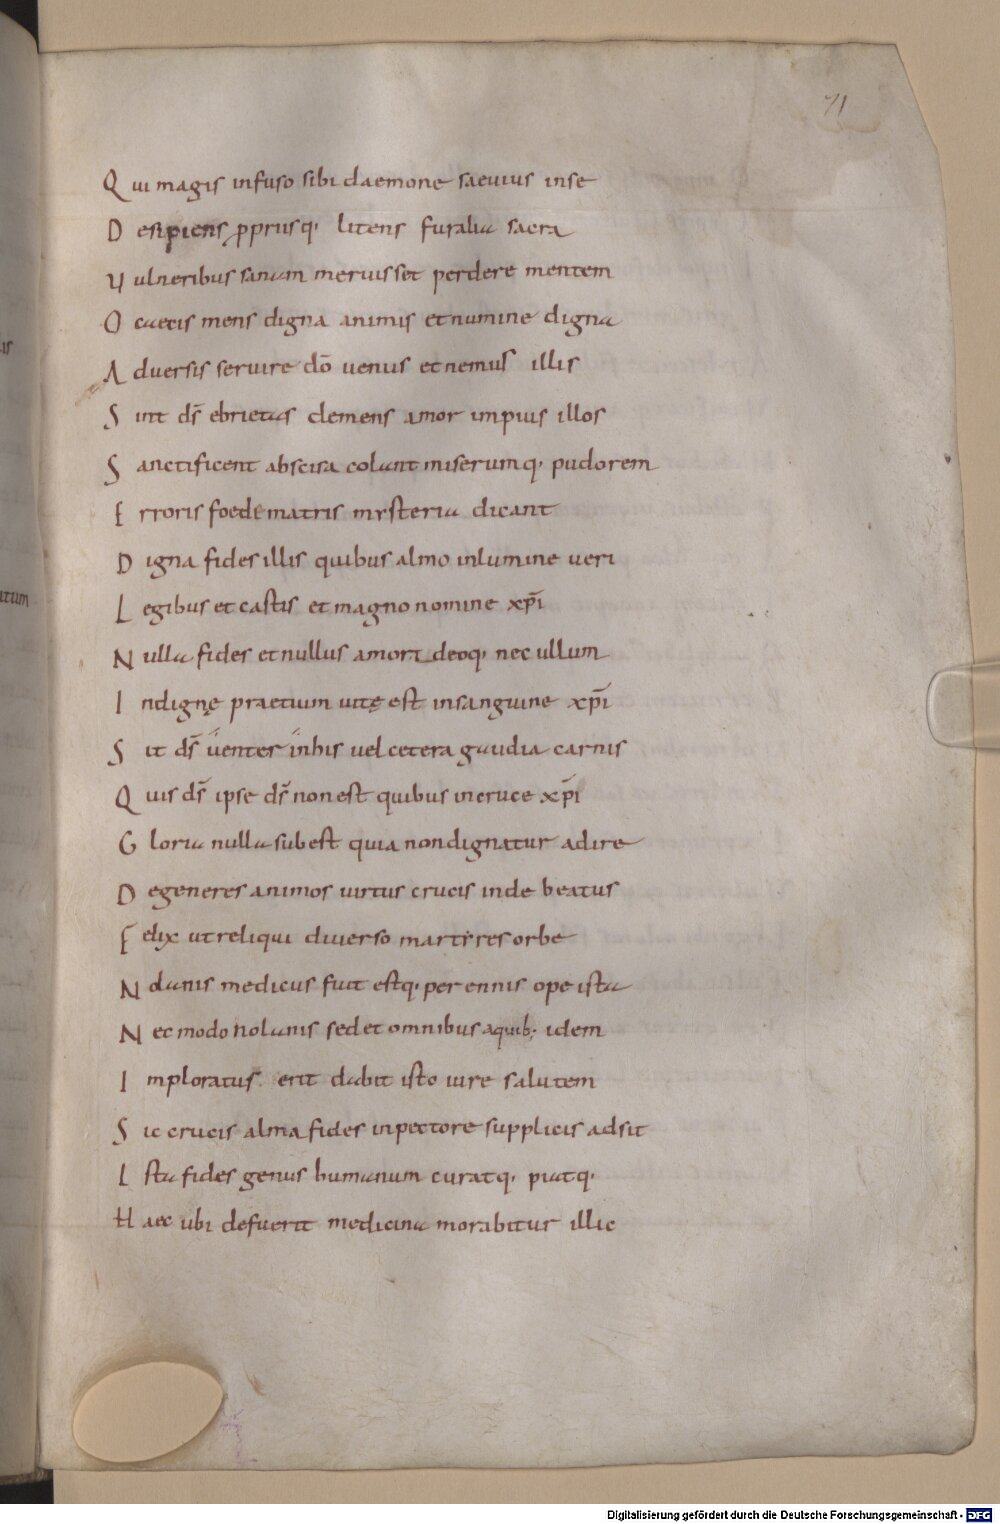 71
Qui magis infuso sibi daemone saevius inse
Desipiens p̱priusq· litens furalia sacra
Vulneribus sanam meruisset perdere mentem
O caecis mens digna animis et numine digna
Adversis servire dō venus et nemus illis
Sint ds̄ ebrietas clemens amor impius illos
Sanctificent abscisa colant miserumq· pudorem
Erroris foede matris mysteria dicant
Digna fides illis quibus almo inlumine veri
Legibus et castis et magno nomine xp̄i
Nulla fides et nullus amor deoq· nec ullum
Indignę praetium vitę est insanguine xp̄i
Sit ds̄ venter inhis vel cetera gaudia carnis
Quis ds̄ ipse ds̄ non est quibus incruce xp̄i
Gloria nulla subest quia non dignatur adire
Degeneres animos virtus crucis inde beatus
Felix ut reliqui diverso martyres orbe
Ndanis medicus fuit estq· perennis ope ista
Nec modo nolanis sed et omnibus aquib; idem
Imploratus erit dabit isto iure salutem
Sic crucis alma fides inpectore supplicis adsit
Ista fides genus humanum curatq· piatq·
Haec ubi defuerit medicina morabitur illic
is
itum
Digitalisierung gefördert durch die Deutsche Forschungsgemeinschaft - DFG